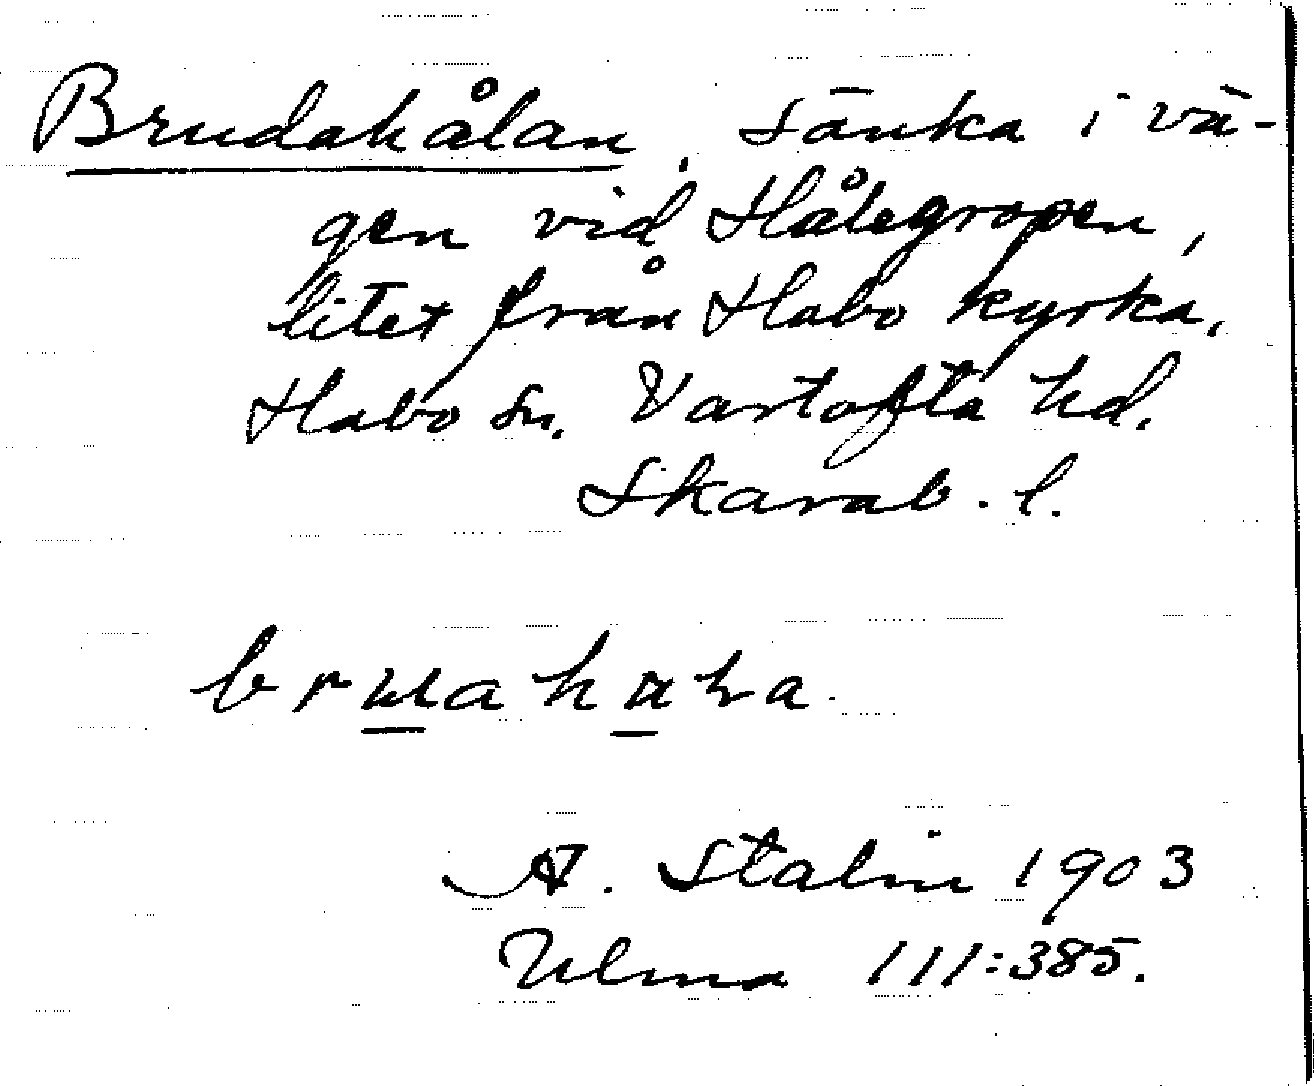 Brudahålan, sänka i vä-
gen vid Hålegropen,
litet från Habo kyrka,
Habo sn. Vartofta hd.
Skarab. l.
A. Stalin 1903
Ulma 111:385.